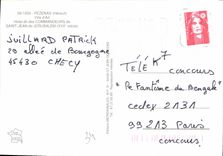 PEZENAS (Hérault)
Hôtel des COMMANDEURS de
SAINT JEAN de JERUSALEM (XVIIe siècle)
JUILLARD PATRICK
29 allée de Bourgogne
45430 CHECY
TÉLÉ K7
concours
"Le Fantôme du Bengale"
cedex 2131
99213 Paris
concours